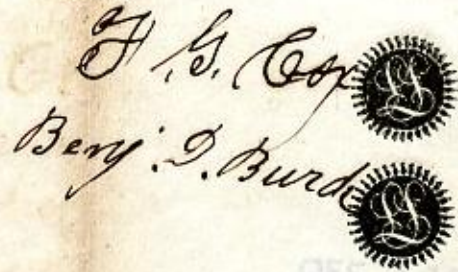 F. G. Cox
LS
Benj. D. Burd
LS